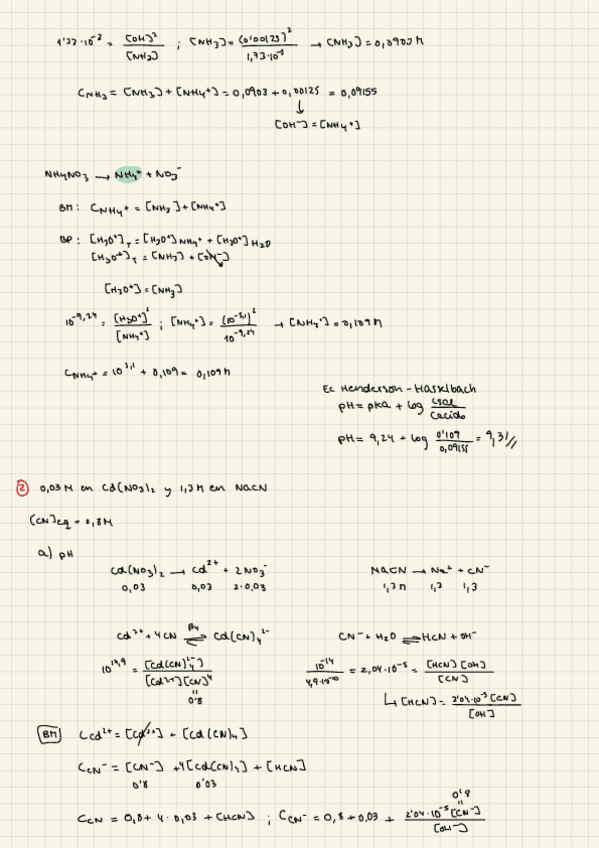 1'77·10⁻⁵ = [OH]² / [NH₃] ; [NH₃] = (0'00125)² / 1,73·10⁻⁵ → [NH₃] = 0,0903 M
C NH₃ = [NH₃] + [NH₄⁺] = 0,0903 + 0,00125 = 0,09155
↓
[OH⁻] = [NH₄⁺]
NH₄NO₃ → NH₄⁺ + NO₃⁻
BM: C NH₄⁺ = [NH₃] + [NH₄⁺]
BP: [H₃O⁺]T = [H₃O⁺]NH₄⁺ + [H₃O⁺]H₂O
[H₃O⁺]T = [NH₃] + [OH⁻]
[H₃O⁺] = [NH₃]
10⁻⁹,²⁴ = [H₃O⁺]² / [NH₄⁺] ; [NH₄⁺] = (10⁻⁵,¹)² / 10⁻⁹,²⁴ → [NH₄⁺] = 0,109 M
C NH₄⁺ = 10⁵,¹ + 0,109 = 0,109 M
Ec Henderson - Hasselbach
pH = pKa + log Csal / Cacido
pH = 9,24 + log 0'109 / 0,09155 = 9,31//
② 0,03 M en Cd(NO₃)₂ y 1,3 M en NaCN
[CN]eq = 0,8 M
a) pH
Cd(NO₃)₂ → Cd²⁺ + 2NO₃⁻ NaCN → Na⁺ + CN⁻
0,03 0,03 2·0,03 1,3 M 1,3 1,3
Cd²⁺ + 4CN ⇌ β₄ Cd(CN)₄²⁻ CN⁻ + H₂O ⇌ HCN + OH⁻
10¹⁷,⁹ = [Cd(CN)₄²⁻] / [Cd²⁺][CN]⁴ 10⁻¹⁴ / 4,9·10⁻¹⁰ = 2,04·10⁻⁵ = [HCN][OH] / [CN]
"
0'8
↳ [HCN] = 2'04·10⁻⁵[CN] / [OH]
BM C Cd²⁺ = [Cd²⁺] + [Cd(CN)₄]
C CN⁻ = [CN⁻] + 4[Cd(CN)₄] + [HCN]
0'8 0'03
C CN = 0,8 + 4·0,03 + [HCN] ; C CN⁻ = 0,8 + 0,03 + 2'04·10⁻⁵[CN⁻] / [OH⁻]
0'8
"